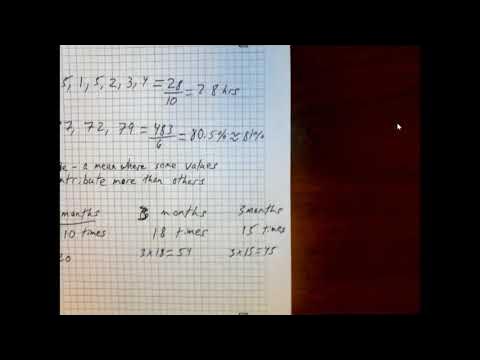 5, 1, 5, 2, 3, 4 = 28/10 = 2.8 hrs
7, 72, 79 = 483/6 = 80.5% ≈ 81%
- a mean where some values
ntribute more than others
months 3 months 3 months
10 times 18 times 15 times
20 3×18=54 3×15=45